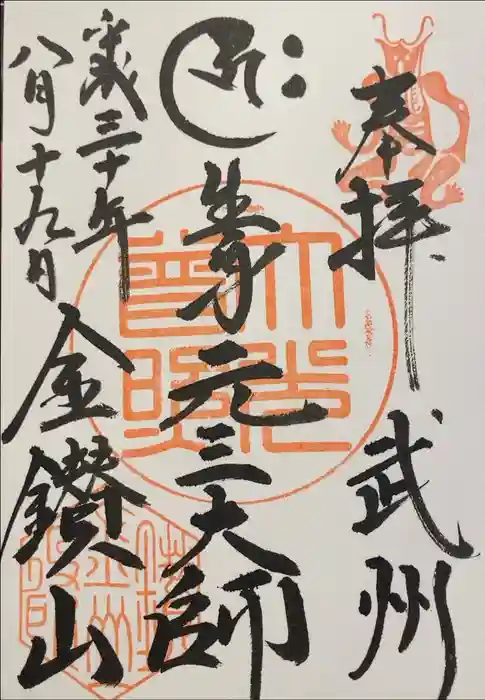 奉拝
武州
元三大師
平成三十年
八月十九日
金鑚山